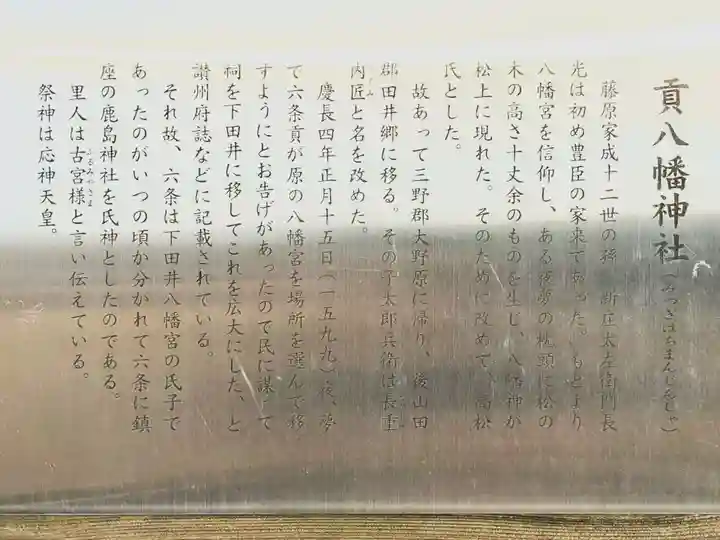 貢八幡神社(みつぎはちまんじんじゃ)
藤原家成十二世の孫 新庄太左衛門長
光は初め豊臣の家来であった。もとより
八幡宮を信仰し、ある夜夢の枕頭に松の
木の高さ十丈余のものを生じ、八幡神が
松上に現れた。そのために改めて、高松
氏とした。
故あって三野郡大野原に帰り、後山田
郡田井郷に移る。その子太郎兵衛は長重
内匠と名を改めた。
慶長四年正月十五日(一五九九)夜、夢
で六条貢が原の八幡宮を場所を選んで移
すようにとお告げがあったので民に謀って
祠を下田井に移してこれを広大にした、と
讃州府誌などに記載されている。
それ故、六条は下田井八幡宮の氏子で
あったのがいつの頃か分かれて六条に鎮
座の鹿島神社を氏神としたのである。
里人は古宮様と言い伝えている。
ふるみやさま
祭神は応神天皇。